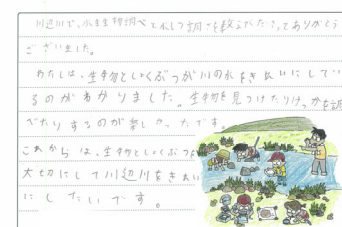 川辺川で、水生生物調べと水しつ調べを教えてくださってありがとう
ございました。
わたしは、生物としょくぶつが川の水をきれいにしてい
るのがわかりました。生物を見つけたりけっかを調
べたりするのが楽しかったです。
これからは、生物としょくぶつを
大切にして川辺川をきれい
にしたいです。